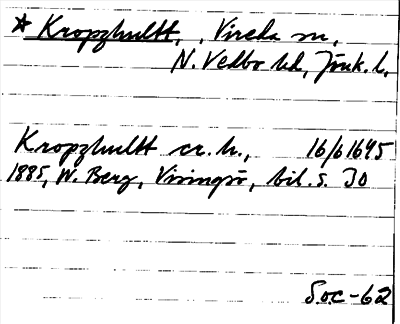 * Kropzhultt, , Vireda sn,
N. Vedbo hd, Jönk. l.
Kropzhultt cr. h., 16/6 1645
1885, W. Berg, Visingsö, bil. s. 30
S.o.c-62